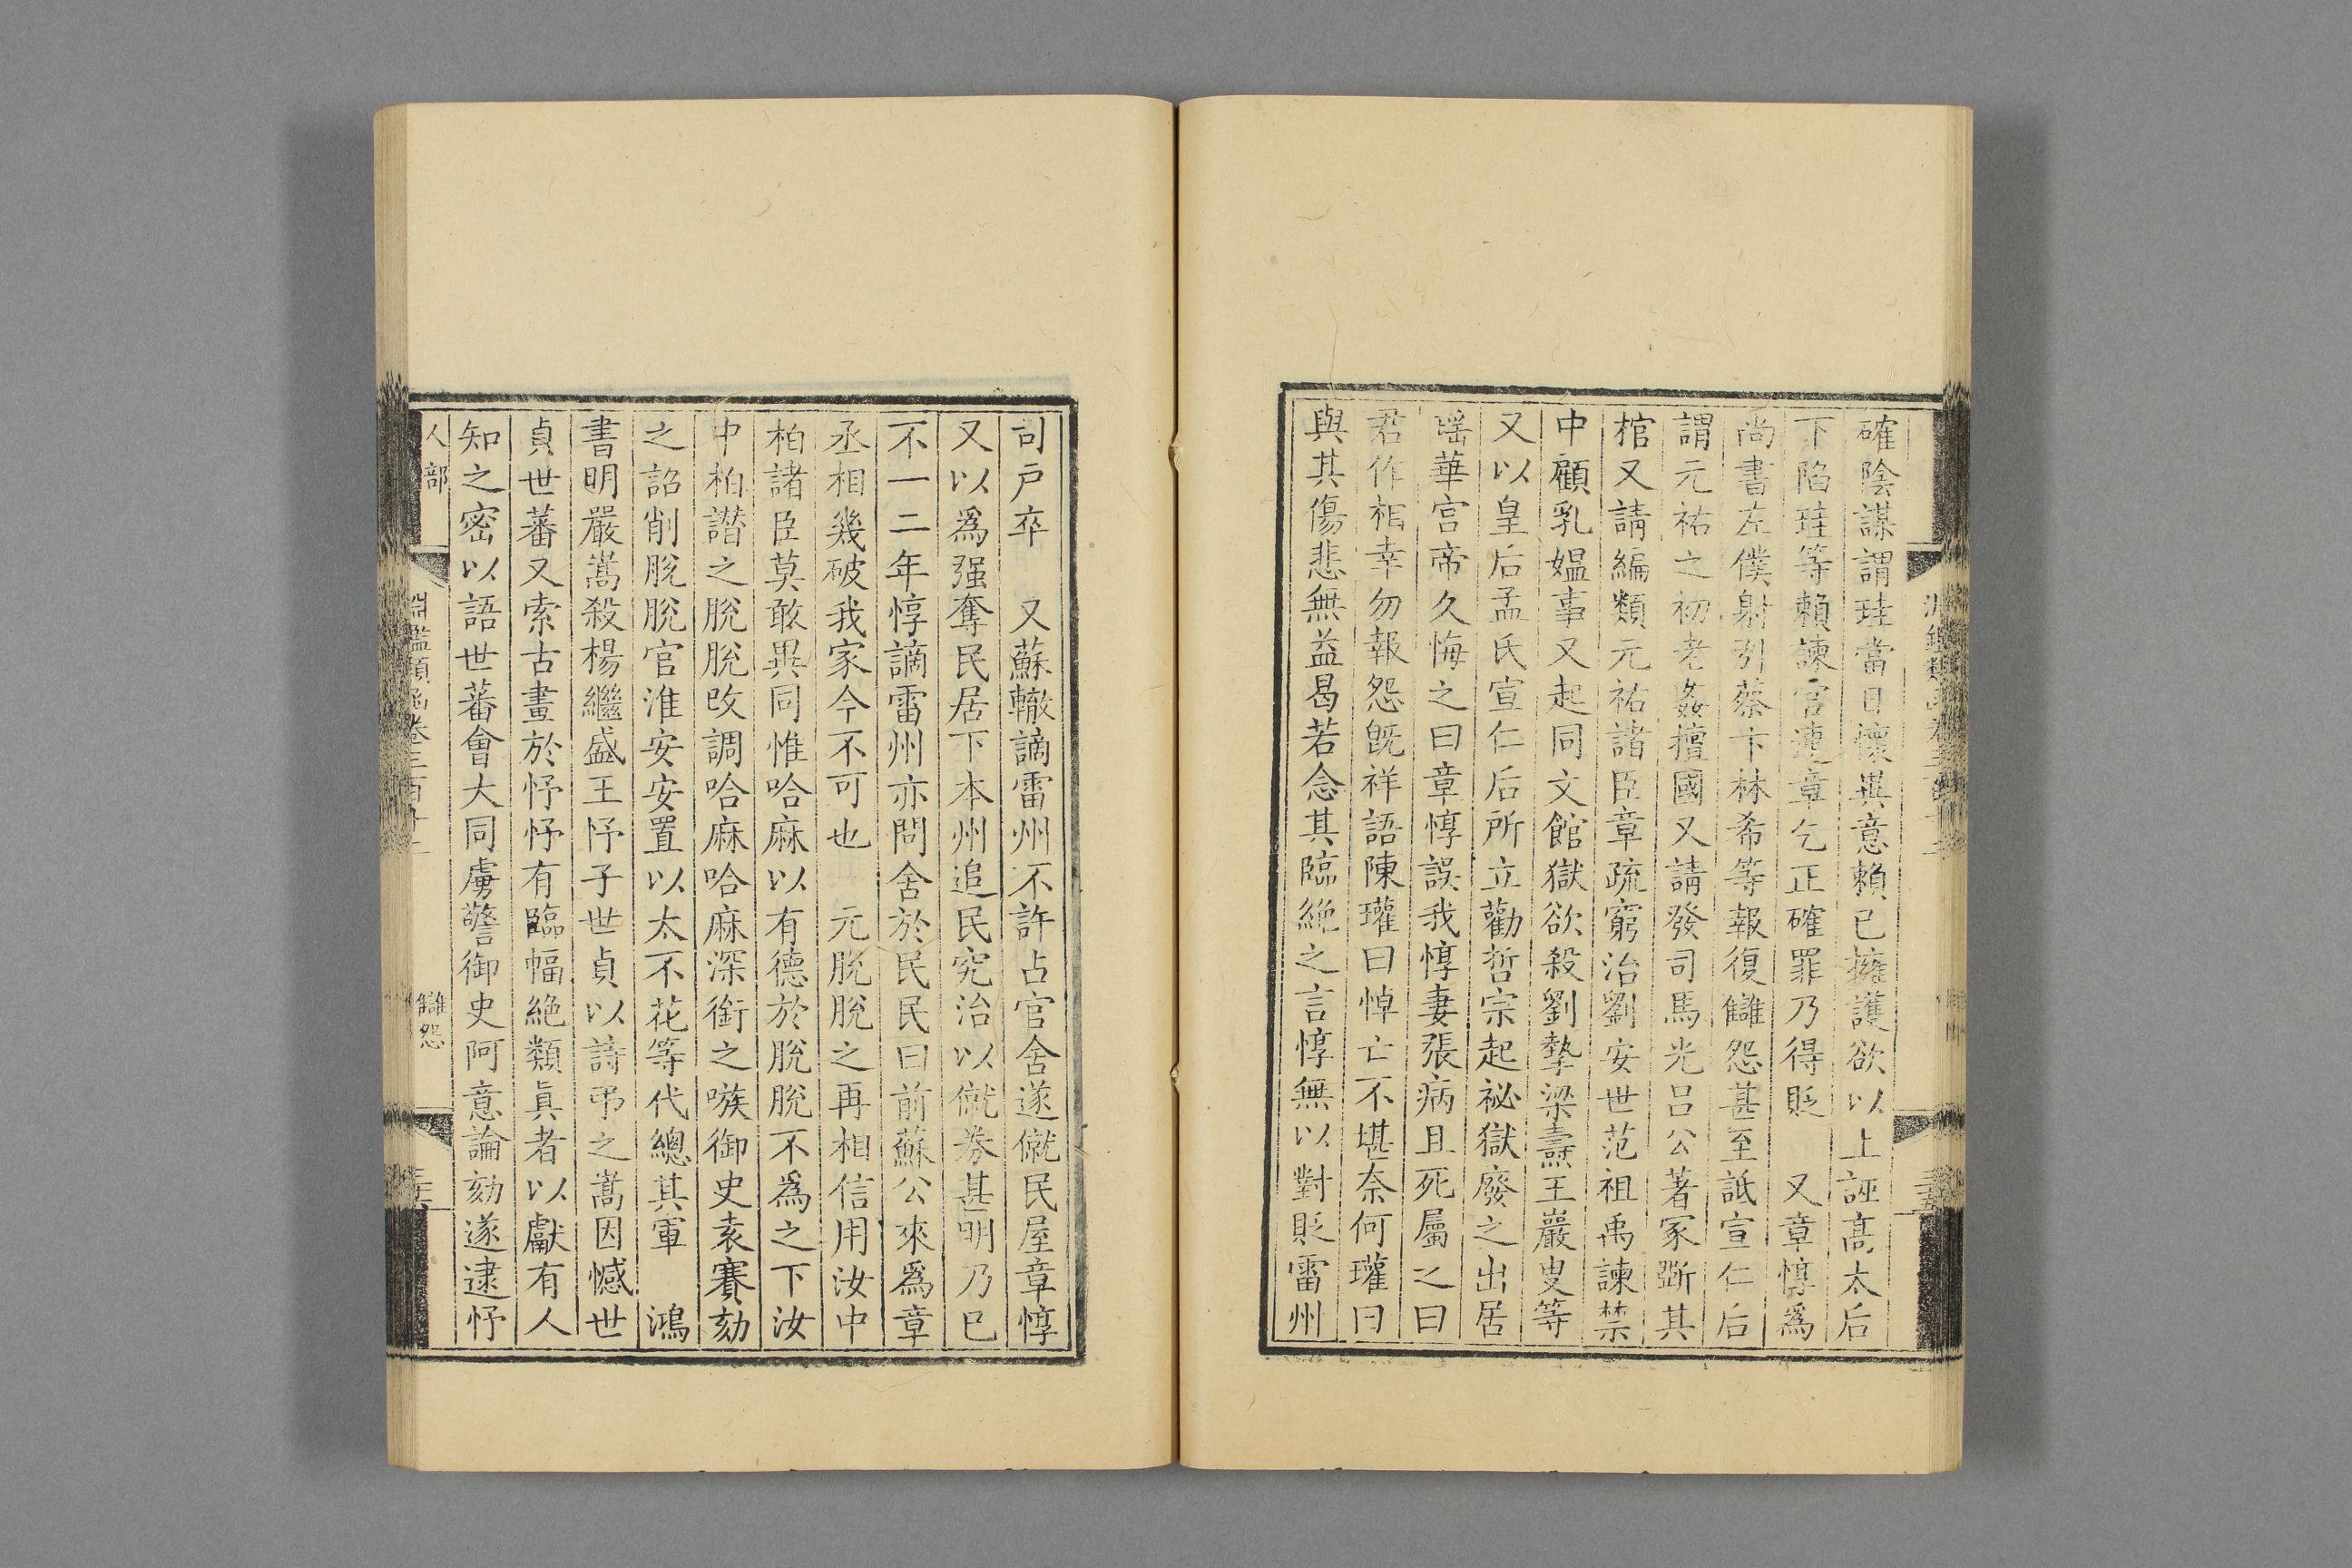 確陰謀謂珪當日懷異意賴已擁護欲以上誣髙太后
下陷珪等賴諫官連章乞正確罪乃得貶　又章惇爲
尚書左僕射引蔡卞林希等報復讎怨甚至詆宣仁后
謂元祐之初老姦擅國又請發司馬光吕公著冢斵其
棺又請編類元祐諸臣章疏窮治劉安世范祖禹諫禁
中顧乳媪事又起同文館獄欲殺劉摯梁燾王巖叟等
又以皇后孟氏宣仁后所立勸哲宗起祕獄廢之出居
瑶華宫帝久悔之曰章惇誤我惇妻張病且死屬之曰
君作相幸勿報怨旣祥語陳瓘曰悼亡不堪奈何瓘曰
與其傷悲無益曷若念其臨絶之言惇無以對貶雷州
司户卒　又蘇轍謫雷州不許占官舍遂僦民屋章惇
又以爲强奪民居下本州追民究治以僦券甚明乃已
不一二年惇謫雷州亦問舍於民民曰前蘇公來爲章
丞相幾破我家今不可也　元脱脱之再相信用汝中
柏諸臣莫敢異同惟哈麻以有德於脱脱不爲之下汝
中柏譖之脱脱改調哈麻哈麻深銜之嗾御史袁賽劾
之詔削脱脱官淮安安置以太不花等代總其軍　鴻
書明嚴嵩殺楊繼盛王忬子世貞以詩弔之嵩因憾世
貞世蕃又索古畫於忬忬有臨幅絶類眞者以獻有人
知之密以語世蕃會大同虜警御史阿意論劾遂逮忬
人部
淵鑑類函卷三百
讎怨